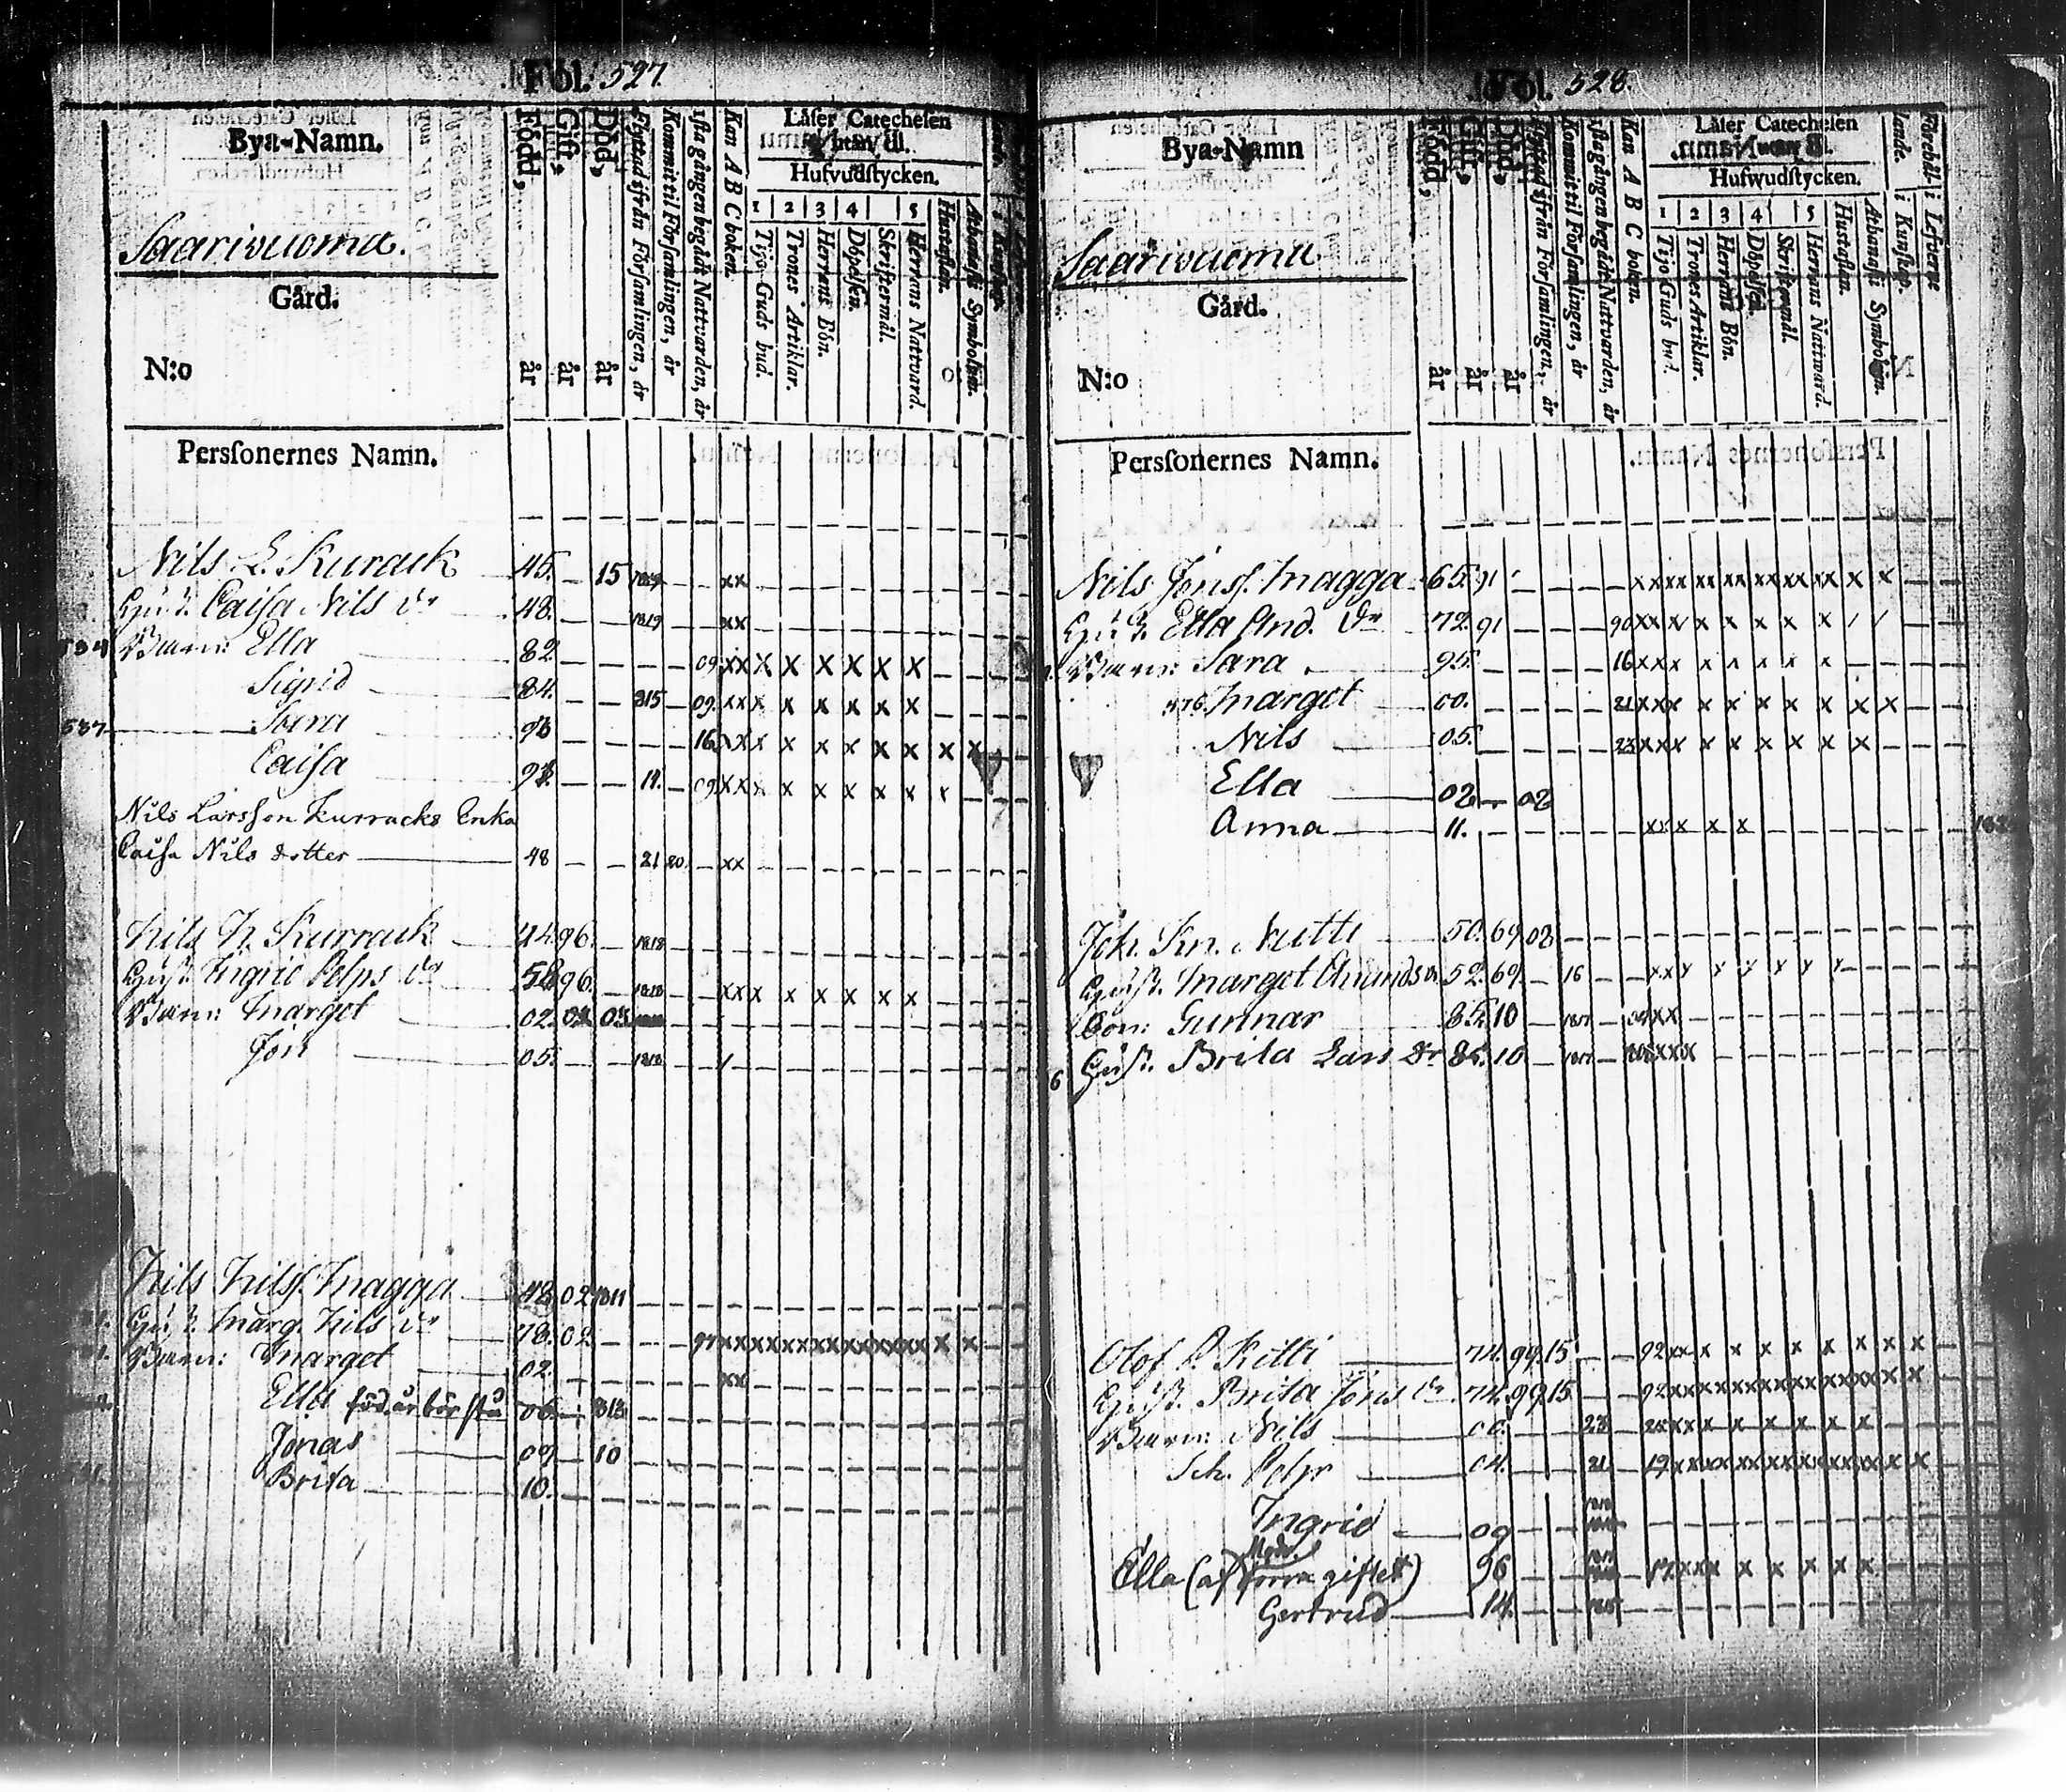 Fol. 527.
Bya-Namn.
Saarivuoma.
Gård.
N:o
Perſonernes Namn.
Född, år
Gift, år
Död, år
Flyttad ifrån Förſamlingen, år
Kommit til Förſamlingen, år
1ſta gången begådt Nattvarden, år
Kan A B C boken.
Läſer Catecheſen utan til.
Hufvudſtycken.
1 2 3 4 5
Tijo Guds bud.
Trones Artiklar.
Herrans Bön.
Döpelſen.
Skriftermål.
Herrans Nattvard.
Huſtaflan.
Athanaſii Symbolum.
Nils L. Kurack 45. — 15 1819 xx
Huſt. Caiſa Nils dr 48. 1819 xx
534 Barn: Ella 82. 09 xx x x x x x x
Sigrid 84. 815 09. xx x x x x x x
537 Sara 96 16 xx x x x x x x x x
Caiſa 11. 09 xx x x x x x x x
Nils Larsſon Kurracks Enka
Caiſa Nils dotter 48 21 20 xx
Nils N. Kurrack 44. 96. 1818
Huſt. Ingrid Pehrs dr 96. 1818 xx x x x x x x
Barn: Marget 02. 03
Jon 05. 1818 /
Nils Nilsſ. Magga 48. 02 1811
Huſt. Marg. Nils dr 78. 02. 97 xx xx xx xx xx xx xx x x
Barn: Marget 02. xx
Ella föd. år bör ſtå 06. 813
Jonas 09 10
Brita 10.
Fol. 528.
Bya-Namn
Saarivuoma
Gård.
N:o
Perſonernes Namn.
Född, år
Gift, år
Död, år
Flyttad ifrån Förſamlingen, år
Kommit til Förſamlingen, år
1ſta gången begådt Nattvarden, år
Kan A B C boken.
Läſer Catecheſen utan til.
Hufwudſtycken.
1 2 3 4 5
Tijo Guds bud.
Trones Artiklar.
Herrans Bön.
Döpelſen.
Skriftermål.
Herrans Nattward.
Huſtaflan.
Athanaſii Symbolum.
i Kunſkap.
i Lefverne
Nils Jonsſ. Magga 65. 91 xx xx xx xx xx xx xx x x
Huſt. Ella And. dr 72. 91 90 xx x x x x x x / /
Barn: Sara 95. 16 xx x x x x x x
576. Marget 00. 21 xx x x x x x x x x
Nils 05. 23 xx x x x x x x x
Ella 02 — 02
Anna 11. xx x x x
Joh. Kn. Nutti 50. 69 02
Huſt. Marget Amunds dr 52. 69. 16 xx x x x x x x
Son: Gunnar 85. 10 1817 xx
6 Huſt. Brita Lars dr 85. 10 1817 xxx
Olof P. Kitti 74. 99. 15 92 xx x x x x x x x x
Huſt. Brita Jons dr 74. 99. 15 92 xx xx xx xx xx xx xx x x
Barn: Nils 00. 23 xx x x x x x x x
Joh. Pehr 04. 21 19 xx xx xx xx xx xx xx x x
Ingrid 09 1818
Modr.
Ella (af förra giftet) 96 17 xx x x x x x x
Gertrud 14. 1815